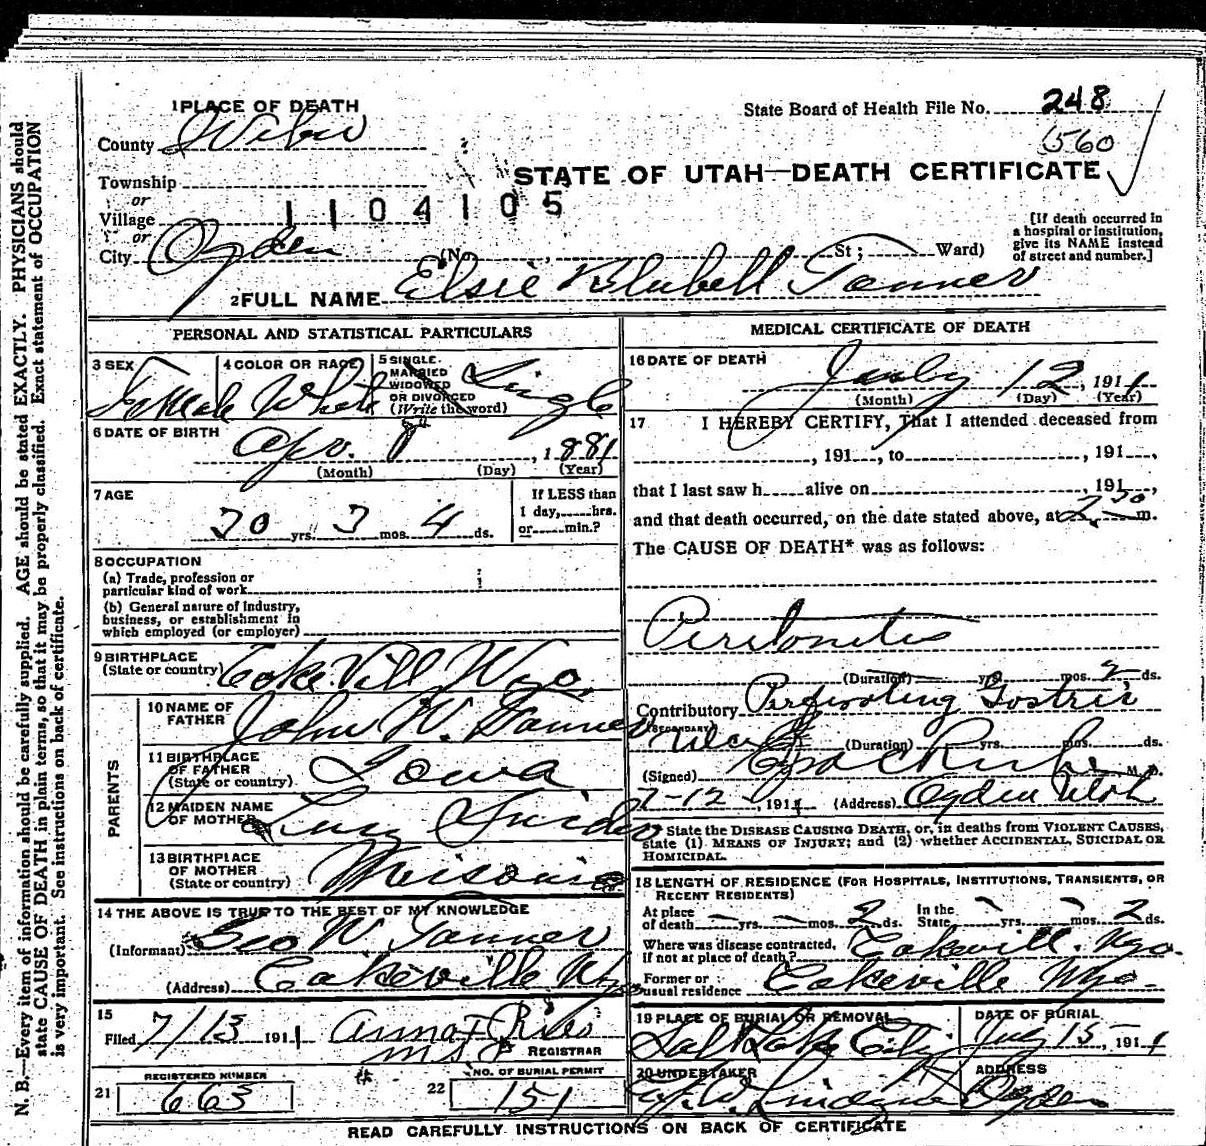 1 PLACE OF DEATH
County Weber
Township
or
Village
or
City Ogden (No. St; Ward)
State Board of Health File No. 248
560
STATE OF UTAH—DEATH CERTIFICATE
1104105
[If death occurred in
a hospital or institution,
give its NAME instead
of street and number.]
2 FULL NAME Elsie Blubell Tanner
PERSONAL AND STATISTICAL PARTICULARS
3 SEX Female
4 COLOR OR RACE White
5 SINGLE.
MARRIED
WIDOWED
OR DIVORCED
(Write the word) Single
6 DATE OF BIRTH Apr. 8th, 1881
(Month) (Day) (Year)
7 AGE
30 yrs. 3 mos. 4 ds.
If LESS than
1 day, hrs.
or min.?
8 OCCUPATION
(a) Trade, profession or
particular kind of work
(b) General nature of industry,
business, or establishment in
which employed (or employer)
9 BIRTHPLACE
(State or country) Coke Vill Wyo.
PARENTS
10 NAME OF
FATHER John W. Tanner
11 BIRTHPLACE
OF FATHER
(State or country) Iowa
12 MAIDEN NAME
OF MOTHER Lucy
13 BIRTHPLACE
OF MOTHER
(State or country)
14 THE ABOVE IS TRUE TO THE BEST OF MY KNOWLEDGE
(Informant) Geo W. Tanner
(Address) Cokeville Wyo
15
Filed 7/13 1911 Anna F Ries
REGISTRAR
REGISTERED NUMBER
21 663
NO. OF BURIAL PERMIT
22 151
MEDICAL CERTIFICATE OF DEATH
16 DATE OF DEATH
July 12, 1911
(Month) (Day) (Year)
17 I HEREBY CERTIFY, That I attended deceased from
, 191 , to , 191 ,
that I last saw h alive on , 191 ,
and that death occurred, on the date stated above, at 2 30 m.
The CAUSE OF DEATH* was as follows:
Peritonitis
(Duration) yrs. mos. 2 ds.
Contributory Perforating Gastric
(SECONDARY) Ulcer (Duration) yrs. mos. ds.
(Signed) M. D.
7-12, 1911 (Address) Ogden Utah
* State the DISEASE CAUSING DEATH, or, in deaths from VIOLENT CAUSES,
state (1) MEANS OF INJURY; and (2) whether ACCIDENTAL, SUICIDAL OR
HOMICIDAL.
18 LENGTH OF RESIDENCE (FOR HOSPITALS, INSTITUTIONS, TRANSIENTS, OR
RECENT RESIDENTS)
At place
of death — yrs. — mos. 2 ds.
In the
State yrs. mos. 2 ds.
Where was disease contracted,
if not at place of death? Cokevill. Wyo.
Former or
usual residence Cokeville Wyo.
19 PLACE OF BURIAL OR REMOVAL
Salt Lake City
DATE OF BURIAL
July 15, 1911
20 UNDERTAKER
ADDRESS
Ogden
READ CAREFULLY INSTRUCTIONS ON BACK OF CERTIFICATE
N. B.—Every item of information should be carefully supplied. AGE should be stated EXACTLY. PHYSICIANS should
state CAUSE OF DEATH in plain terms, so that it may be properly classified. Exact statement of OCCUPATION
is very important. See instructions on back of certificate.